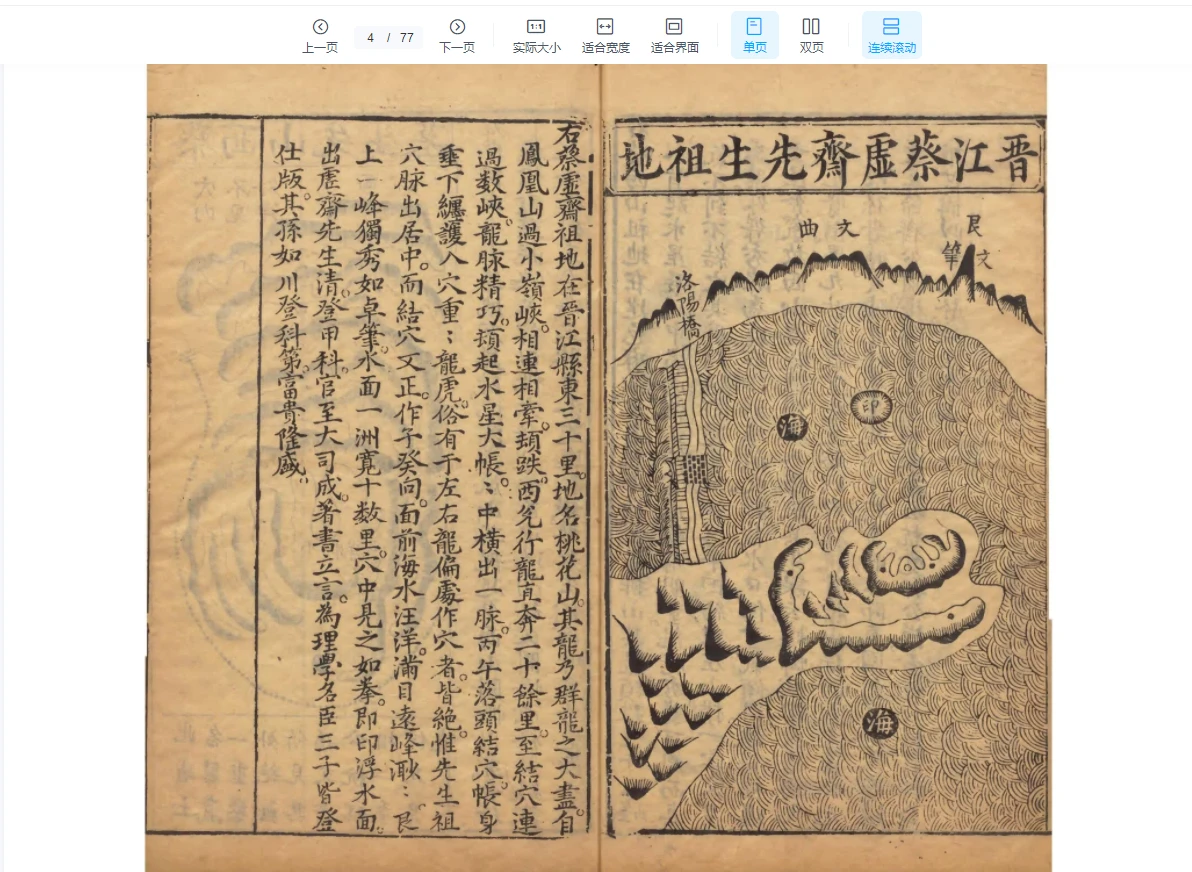 上一页
4 / 77
下一页
1:1
实际大小
适合宽度
适合界面
单页
双页
连续滚动
晋江蔡虛齋先生祖地
艮
文筆
文曲
洛陽橋
印
海
海
右蔡虛齋祖地在晋江縣東三十里地名桃花山其龍乃群龍之大盡自
鳳凰山過小嶺峽相連相牽頓跌西兊行龍直奔二十餘里至結穴連
過數峽龍脉精巧頓起水星大帳〻中橫出一脉丙午落頭結穴帳身
垂下纏護入穴重〻龍虎俗有于左右龍偏處作穴者皆絶惟先生祖
穴脉出居中而結穴又正作子癸向面前海水汪洋滿目遠峰㴬〻艮
上一峰獨秀如卓筆水面一洲寬十數里穴中見之如拳即印浮水面
出虛齋先生清登甲科官至大司成著書立言為理學名臣三子皆登
仕版其孫如川登科第富貴隆盛